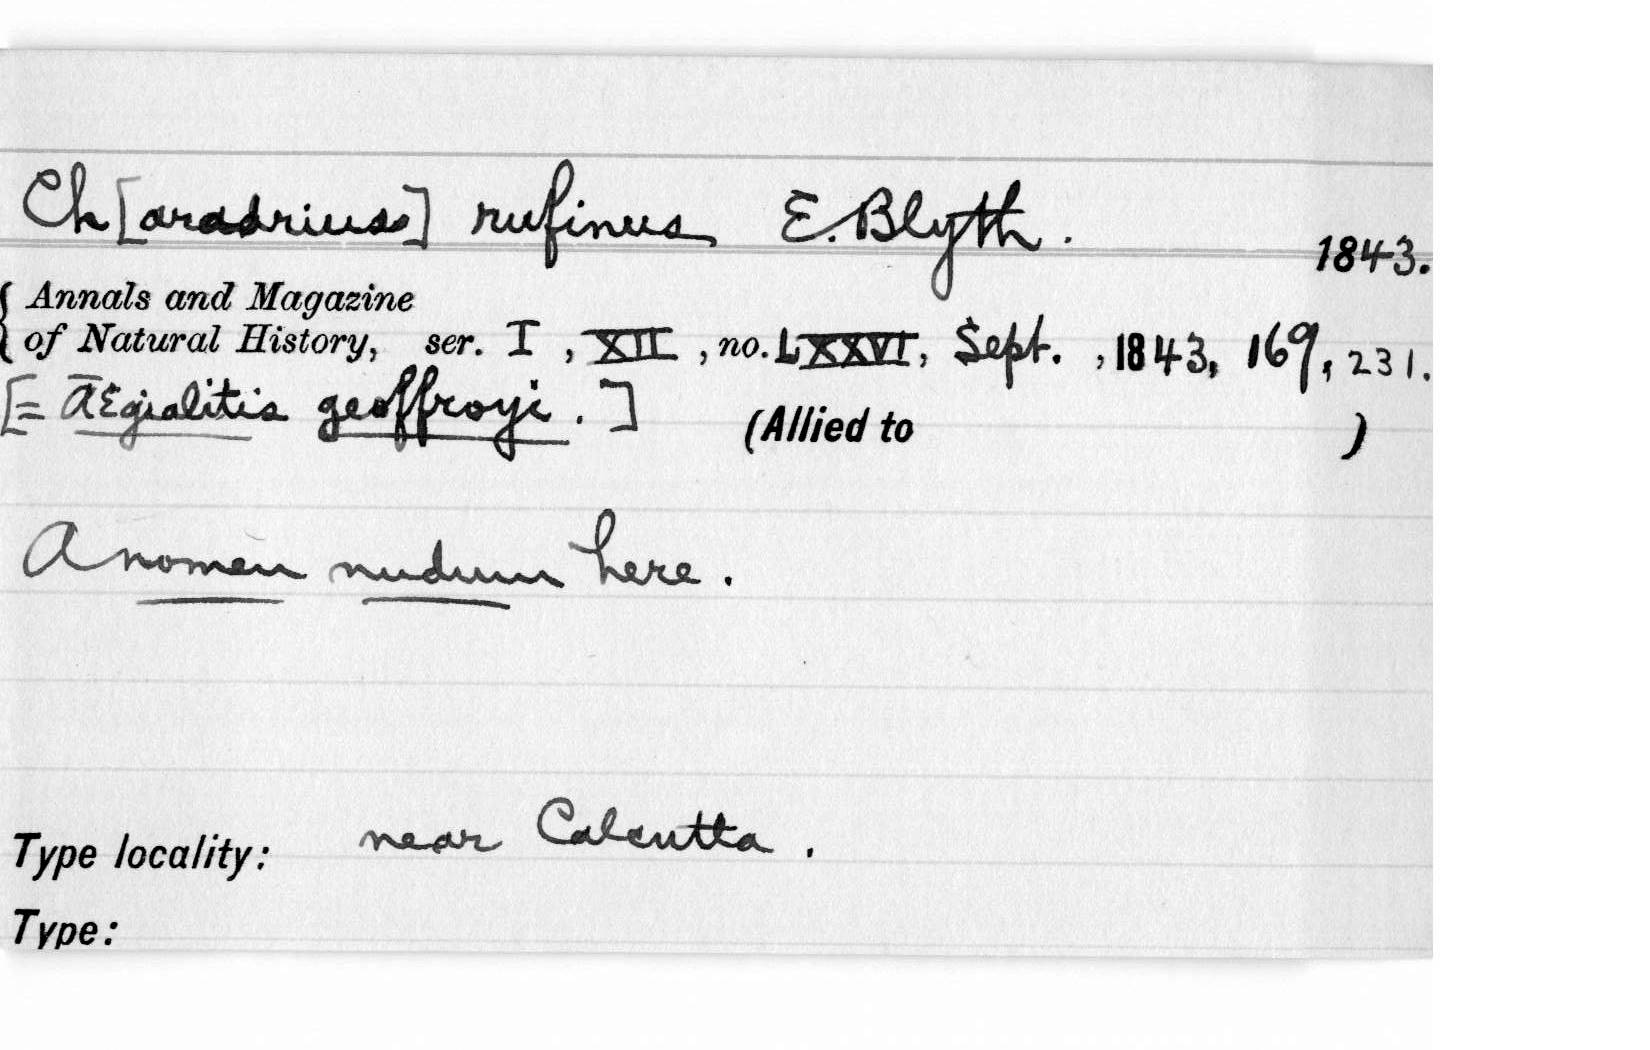 Ch[aradrius] rufinus E. Blyth.
1843.
{ Annals and Magazine
of Natural History, ser. I, XII, no. LXXVI, Sept., 1843, 169, 231.
[= AEgialitis geoffroyi.] (Allied to )
A nomen nudum here.
Type locality: near Calcutta.
Type: